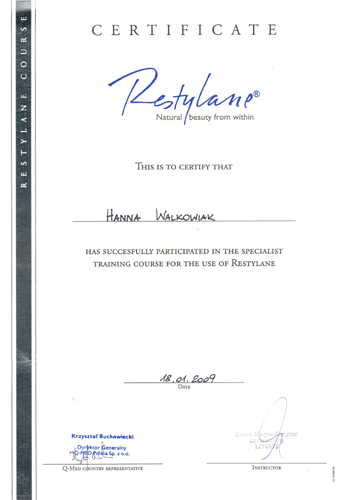 CERTIFICATE
RESTYLANE COURSE
Restylane®
Natural beauty from within
THIS IS TO CERTIFY THAT
HANNA WALKOWIAK
HAS SUCCESFULLY PARTICIPATED IN THE SPECIALIST
TRAINING COURSE FOR THE USE OF RESTYLANE
18.01.2009
DATE
Krzysztof Buchowiecki
Dyrektor Generalny
Q-MED Polska Sp. z o.o.
Q-MED COUNTRY REPRESENTATIVE
INSTRUCTOR